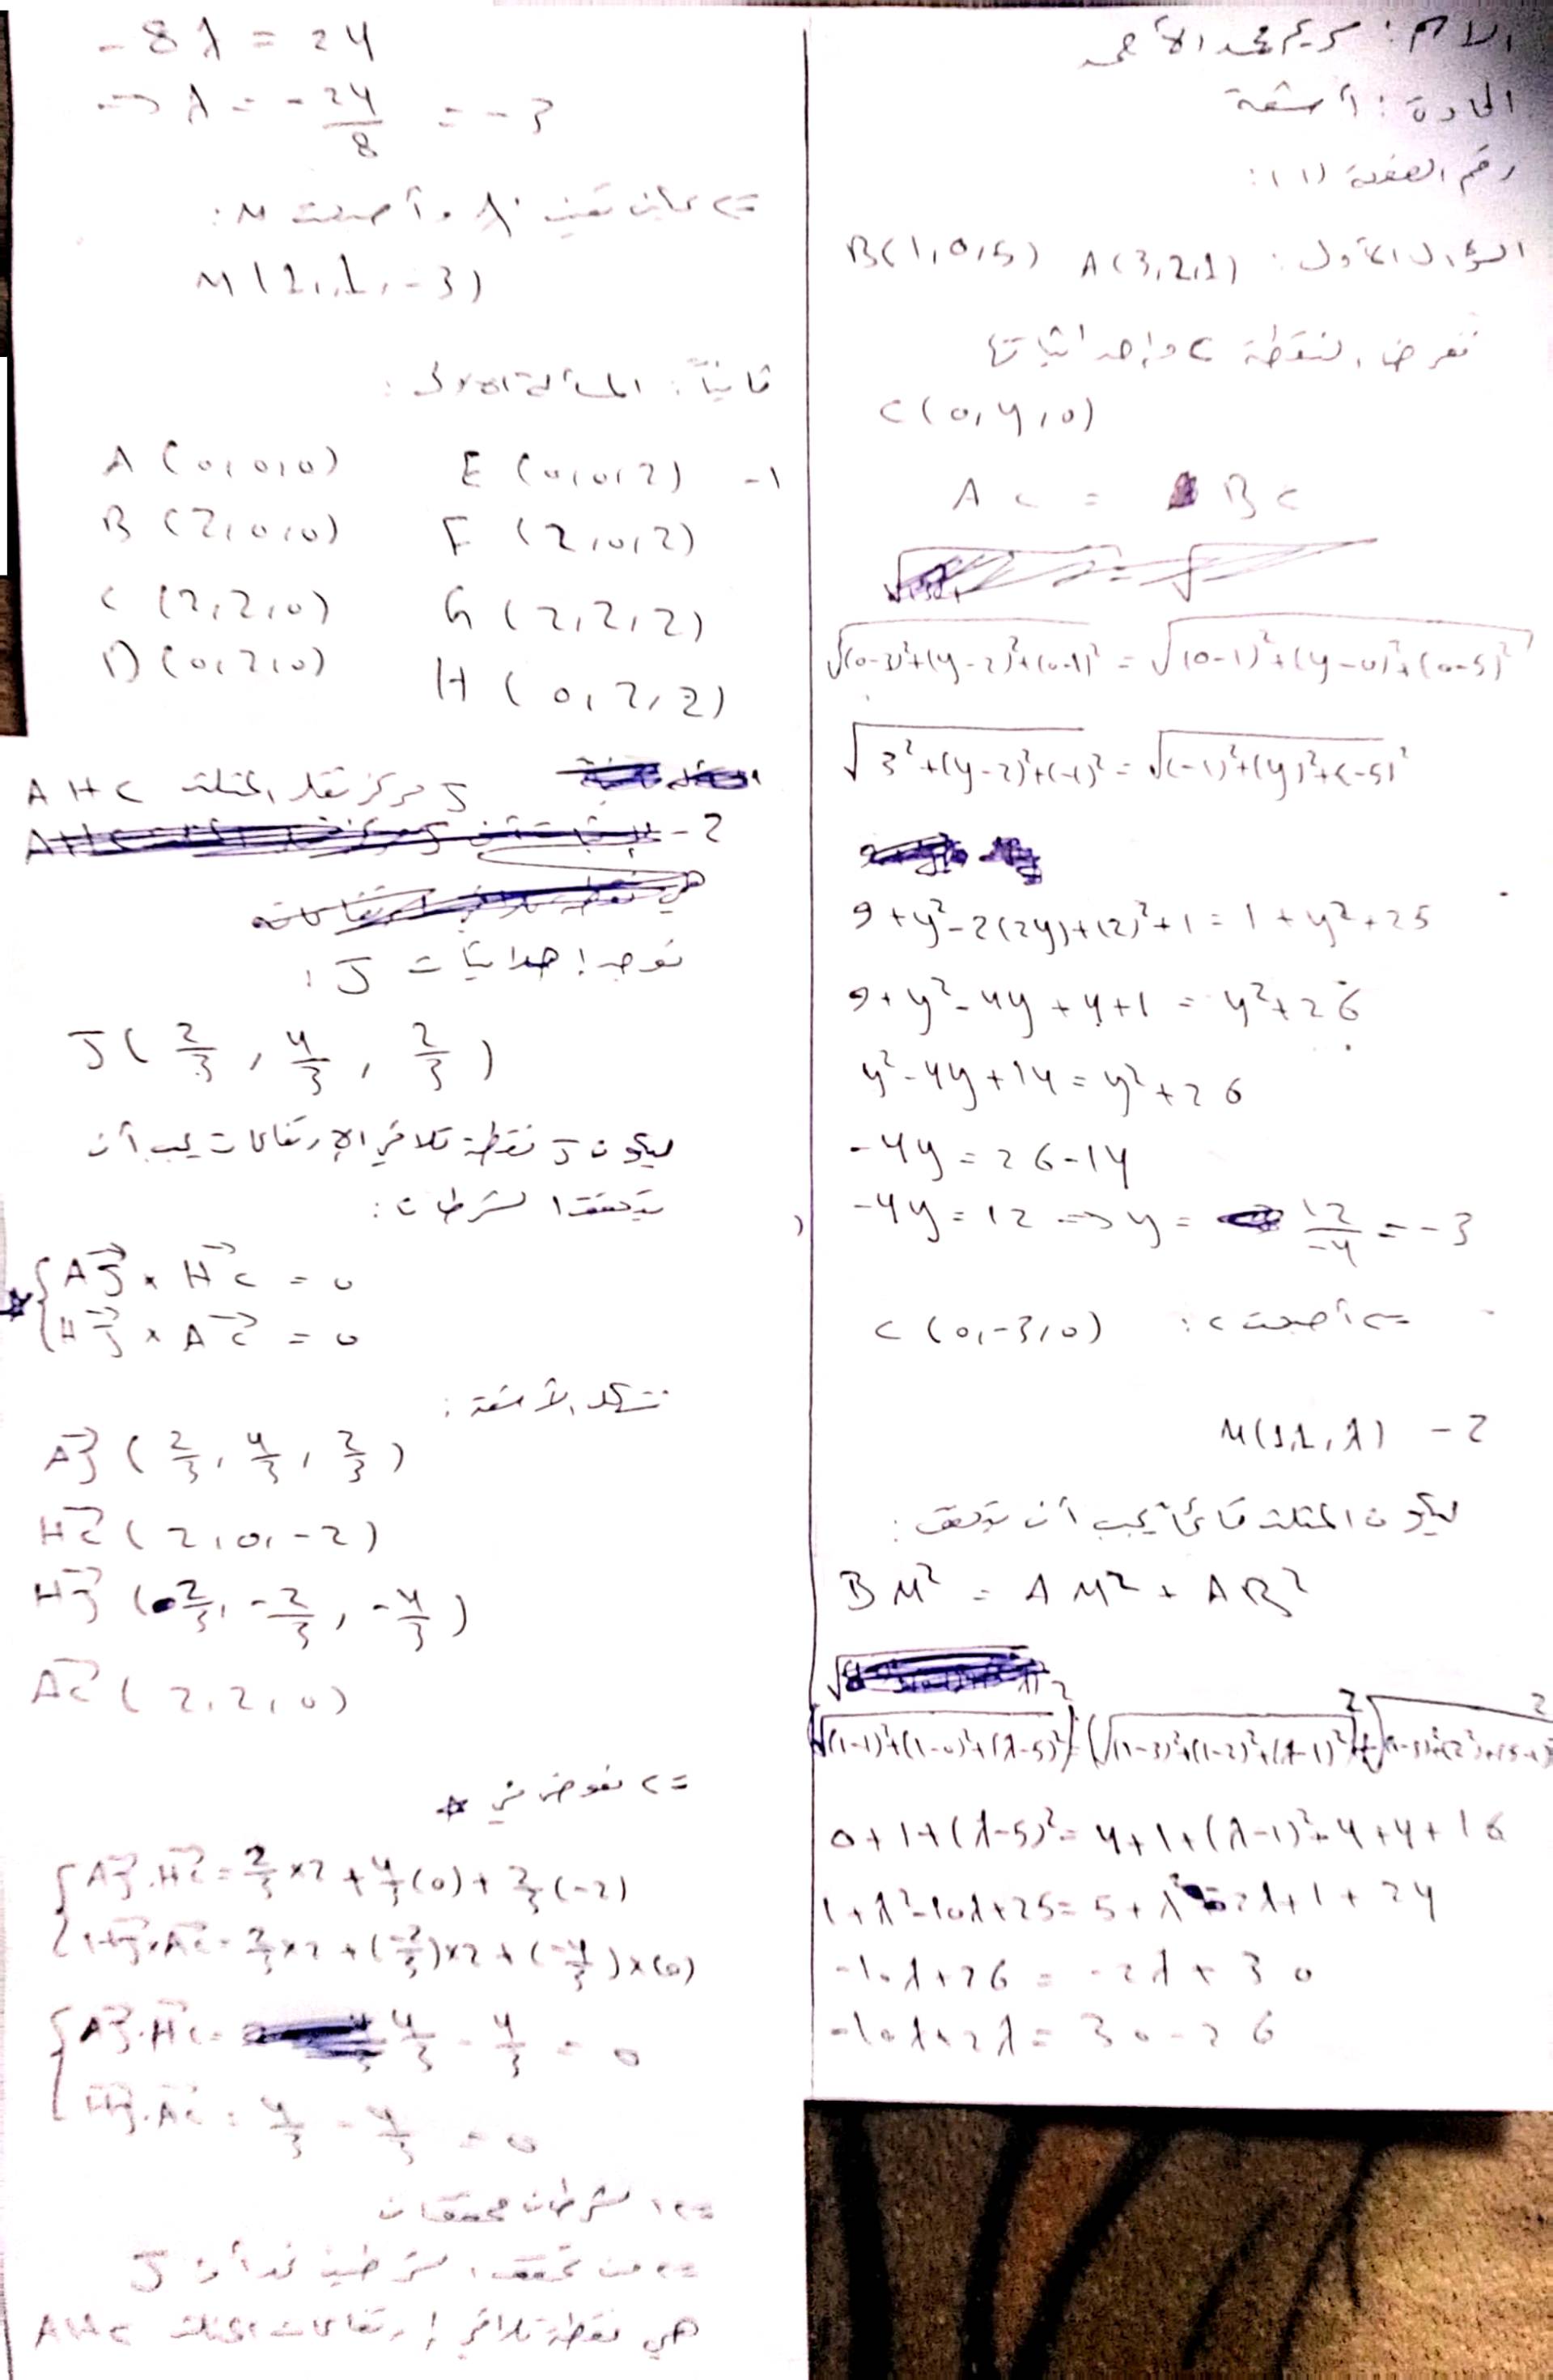 الاسم: كريم محمد الأحمد
المادة: أشعة
رقم الصفحة (1):
السؤال الأول: A(3,2,1) B(1,0,5)
نفرض النقطة C وإحداثياتها
C(0,y,0)
AC = BC
√(0-3)²+(y-2)²+(0-1)² = √(0-1)²+(y-0)²+(0-5)²
√3²+(y-2)²+(-1)² = √(-1)²+(y)²+(-5)²
9+y²-2(2y)+(2)²+1 = 1+y²+25
9+y²-4y+4+1 = y²+26
y²-4y+14 = y²+26
-4y = 26-14
-4y = 12 => y = 12/-4 = -3
=> أصبحت C: C(0,-3,0)
2- M(1,1,λ)
ليكون المثلث قائماً يجب أن يتحقق:
BM² = AM² + AB²
(√(1-1)²+(1-0)²+(λ-5)²)² = (√(1-3)²+(1-2)²+(λ-1)²)² +
0+1+(λ-5)² = 4+1+(λ-1)²+4+4+16
1+λ²-10λ+25 = 5+λ²-2λ+1+24
-10λ+26 = -2λ+30
-10λ+2λ = 30-26
-8λ = 24
=> λ = -24/8 = -3
M(1,1,-3)
ثانياً: المسألة الأولى:
1- A(0,0,0) E(0,0,2)
B(2,0,0) F(2,0,2)
C(2,2,0) G(2,2,2)
D(0,2,0) H(0,2,2)
2- J مركز ثقل المثلث AHC
نوجد إحداثيات J:
J(2/3, 4/3, 2/3)
ليكون J نقطة تلاقي الارتفاعات يجب أن
يتحقق الشرطان:
* { AJ⃗ × HC⃗ = 0
HJ⃗ × AC⃗ = 0
نشكل الأشعة:
AJ⃗(2/3, 4/3, 2/3)
HC⃗(2,0,-2)
HJ⃗(2/3, -2/3, -4/3)
AC⃗(2,2,0)
=> نعوض في *
{ AJ⃗.HC⃗ = 2/3×2 + 4/3(0) + 2/3(-2)
HJ⃗.AC⃗ = 2/3×2 + (-2/3)×2 + (-4/3)×(0)
{ AJ⃗.HC⃗ = 4/3 - 4/3 = 0
HJ⃗.AC⃗ = 4/3 - 4/3 = 0
=> الشرطان محققان
=> من تحقق الشرطين نجد أن J
هي نقطة تلاقي ارتفاعات المثلث AHC